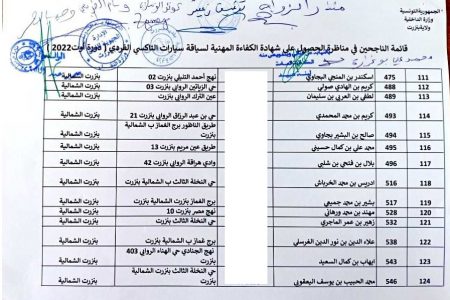 الجمهورية التونسية
وزارة الداخلية
ولاية بنزرت
قائمة الناجحين في مناظرة الحصول على شهادة الكفاءة المهنية لسياقة سيارات التاكسي الفردي ( دورة أوت 2022 )
111 475 اسكندر بن المنجي البجاوي نهج أحمد التليلي بنزرت 02 بنزرت الشمالية
112 488 كريم بن الهادي صولي حي الزياتين بنزرت 03 بنزرت الشمالية
113 489 لطفي بن العربي بن سليمان عين القراد الروابي بنزرت الشمالية
114 493 كريم بن محمد المحمدي حي بن عبد الرزاق الروابي بنزرت 21 بنزرت الشمالية
115 494 صالح بن البشير بجاوي طريق الناظور برج الغماز ب الشمالية بنزرت بنزرت الشمالية
116 495 محمد علي بن كمال حسيني طريق عين مريم بنزرت 13 بنزرت الشمالية
117 496 بلال بن فتحي بن شلبي وادي هراقة الروابي بنزرت 42 بنزرت الشمالية
118 524 ادريس بن محمد الخرباش حي النخلة الثالث ب الشمالية بنزرت بنزرت الشمالية
119 517 بشير بن محمد جميعي برج الغماز بنزرت الشمالية بنزرت بنزرت الشمالية
120 528 مهند بن محمد ورهاني نهج مصر بنزرت 10 بنزرت الشمالية
121 532 زهير بن عمر الماجري حي النخلة الثالث ب الشمالية بنزرت بنزرت الشمالية
122 534 علاء الدين بن نور الدين الغرسلي برج غماز ب الشمالية بنزرت بنزرت الشمالية
123 538 ايهاب بن كمال السعيد نهج الجنادي حي الهناء الروابي 403 بنزرت الشمالية
124 546 محمد الحبيب بن يوسف اليعقوبي حي النخلة الثالث بنزرت الشمالية بنزرت بنزرت الشمالية